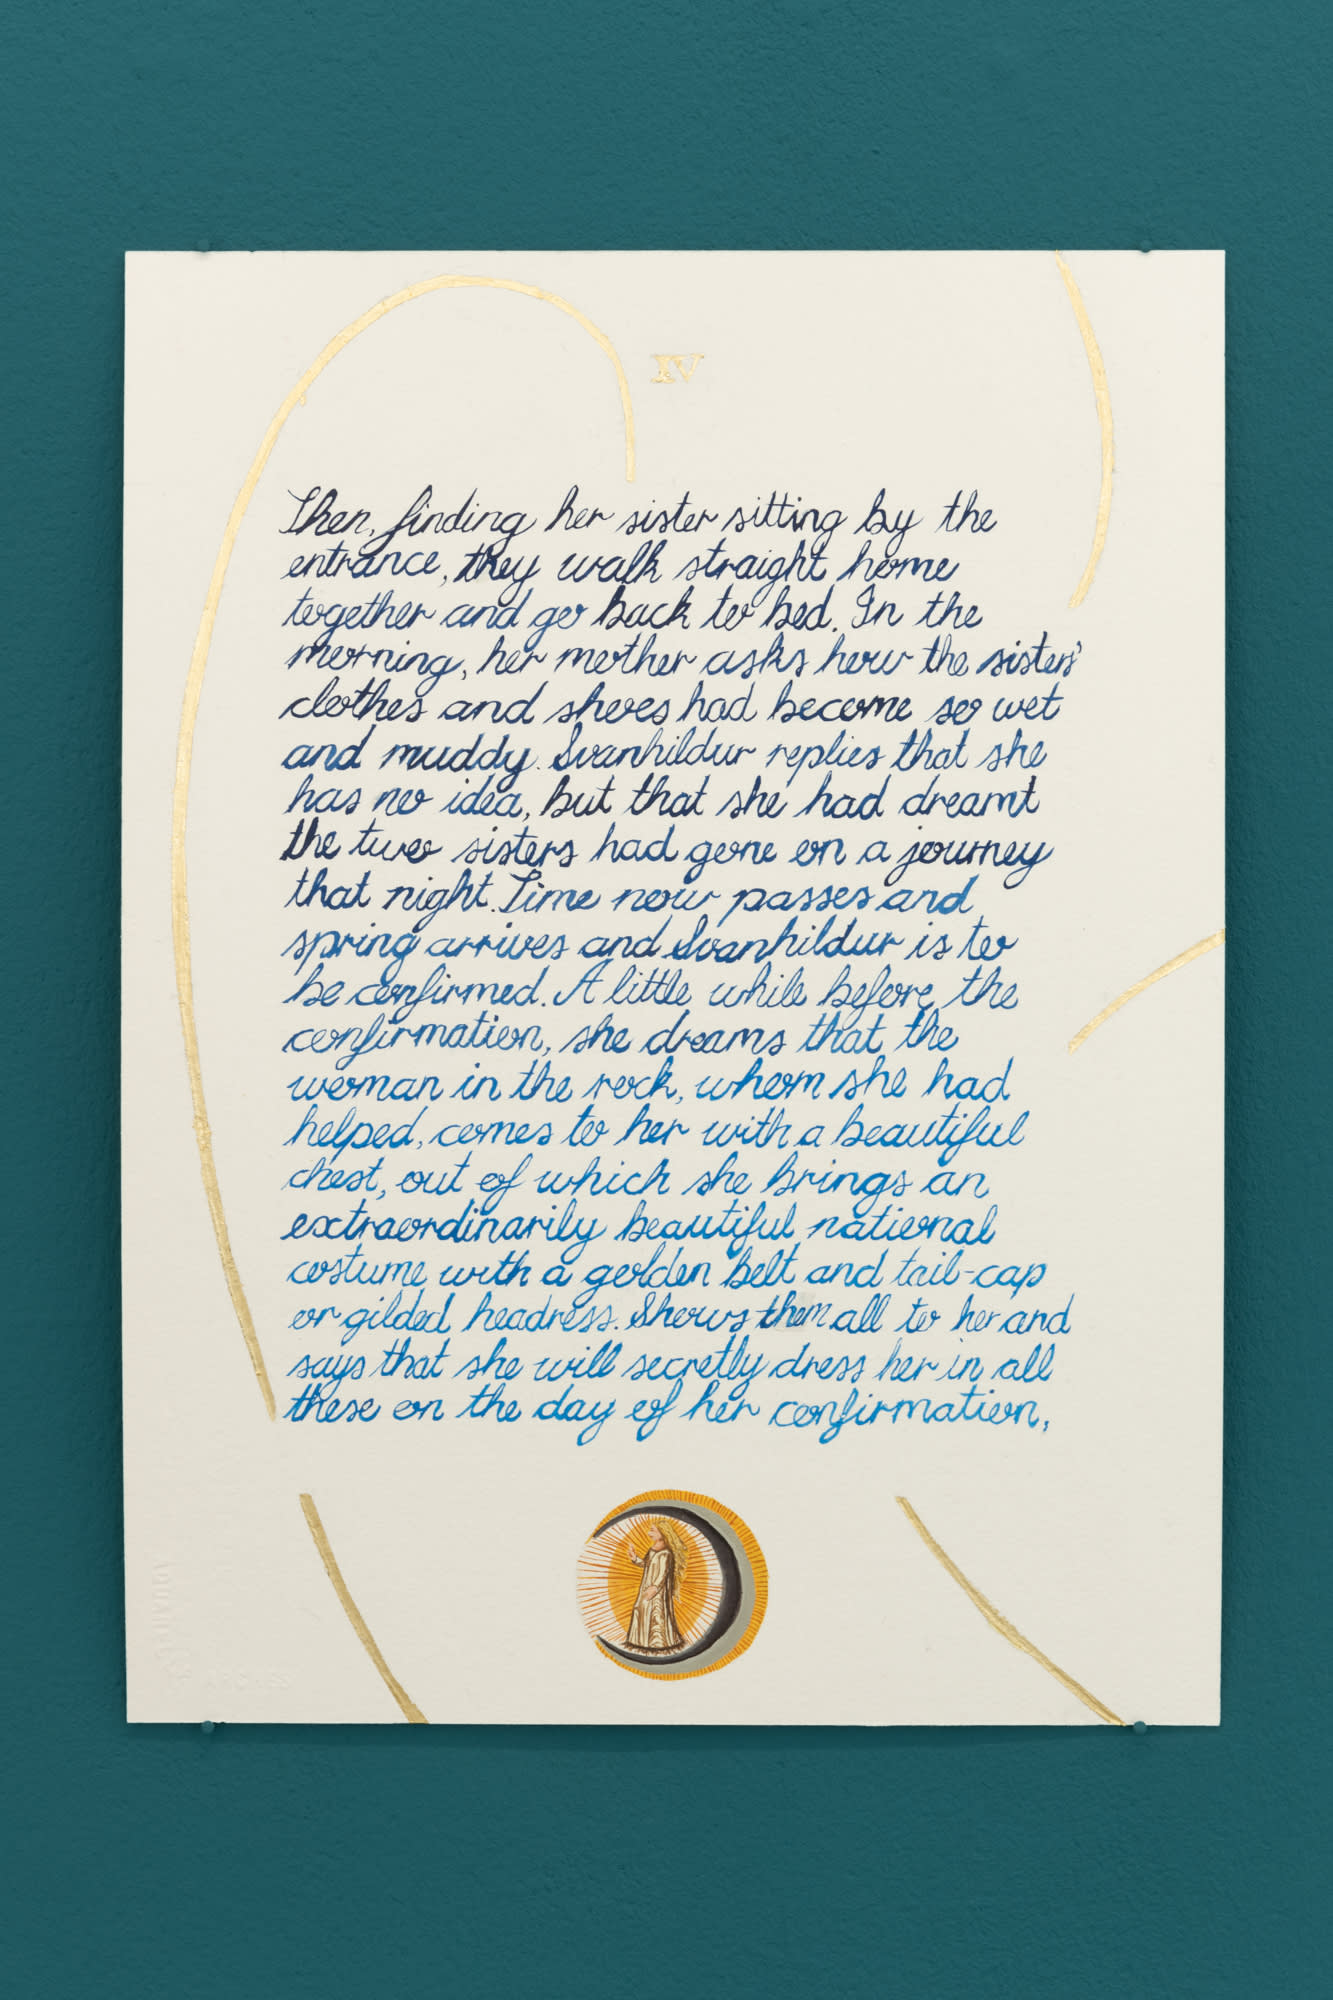 XV
Then, finding her sister sitting by the
entrance, they walk straight home
together and go back to bed. In the
morning, her mother asks how the sisters'
clothes and shoes had become so wet
and muddy. Svanhildur replies that she
has no idea, but that she had dreamt
the two sisters had gone on a journey
that night. Time now passes and
spring arrives and Svanhildur is to
be confirmed. A little while before, the
confirmation, she dreams that the
woman in the rock, whom she had
helped, comes to her with a beautiful
chest, out of which she brings an
extraordinarily beautiful national
costume with a golden belt and tail-cap
or gilded headress. Shows them all to her and
says that she will secretly dress her in all
these on the day of her confirmation,
ARCHES